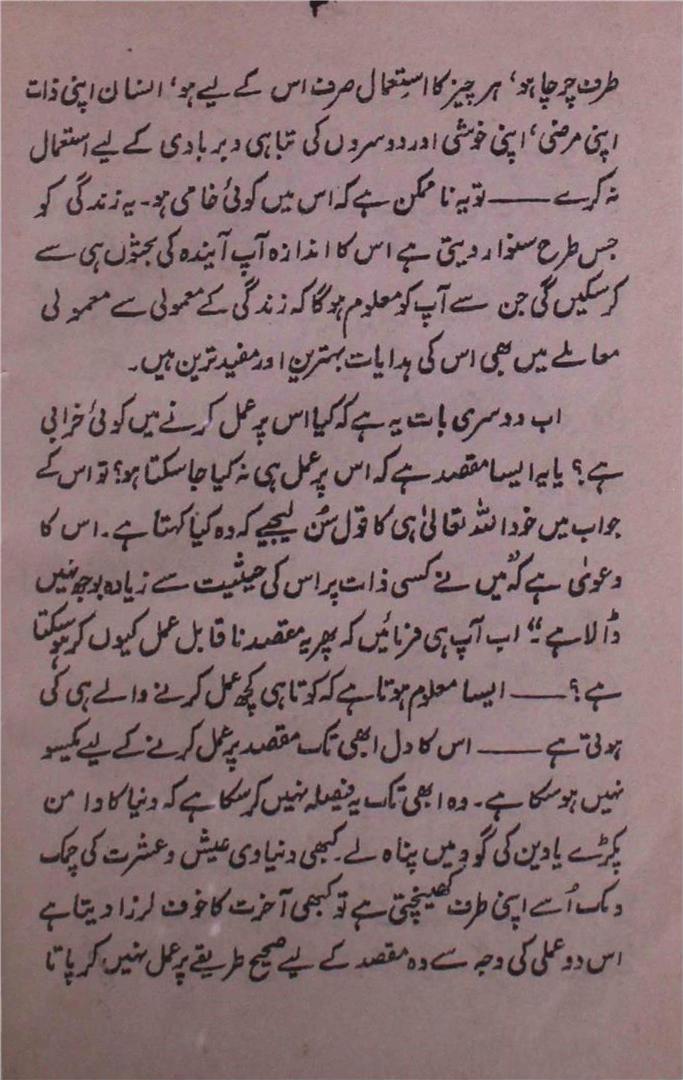 طرف چرچا ہو، ہر چیز کا استعمال صرف اس کے لیے ہو، انسان اپنی ذات
اپنی مرضی، اپنی خوشی اور دوسروں کی تباہی و بربادی کے لیے استعمال
نہ کرے —— تو یہ ناممکن ہے کہ اس میں کوئی خامی ہو۔ یہ زندگی کو
جس طرح سنوار دیتی ہے اس کا اندازہ آپ آیندہ کی بحثوں ہی سے
کر سکیں گی جن سے آپ کو معلوم ہوگا کہ زندگی کے معمولی سے معمولی
معاملے میں بھی اس کی ہدایات بہترین اور مفید ترین ہیں۔
اب دوسری بات یہ ہے کہ کیا اس پر عمل کرنے میں کوئی خرابی
ہے؟ یا یہ ایسا مقصد ہے کہ اس پر عمل ہی نہ کیا جا سکتا ہو؟ تو اس کے
جواب میں خود اللہ تعالیٰ ہی کا قول سُن لیجیے کہ وہ کیا کہتا ہے۔ اس کا
دعویٰ ہے کہ ”میں نے کسی ذات پر اس کی حیثیت سے زیادہ بوجھ نہیں
ڈالا ہے۔“ اب آپ ہی فرمائیں کہ پھر یہ مقصد ناقابل عمل کیوں کر ہو سکتا
ہے؟ —— ایسا معلوم ہوتا ہے کہ کوتاہی کچھ عمل کرنے والے ہی کی
ہوتی ہے —— اس کا دل ابھی تک مقصد پر عمل کرنے کے لیے یکسو
نہیں ہو سکا ہے۔ وہ ابھی تک یہ فیصلہ نہیں کر سکا ہے کہ دنیا کا دامن
پکڑے یا دین کی گود میں پناہ لے۔ کبھی دنیاوی عیش و عشرت کی چمک
دمک اُسے اپنی طرف کھینچتی ہے تو کبھی آخرت کا خوف لرزا دیتا ہے
اس دو عملی کی وجہ سے وہ مقصد کے لیے صحیح طریقے پر عمل نہیں کر پاتا